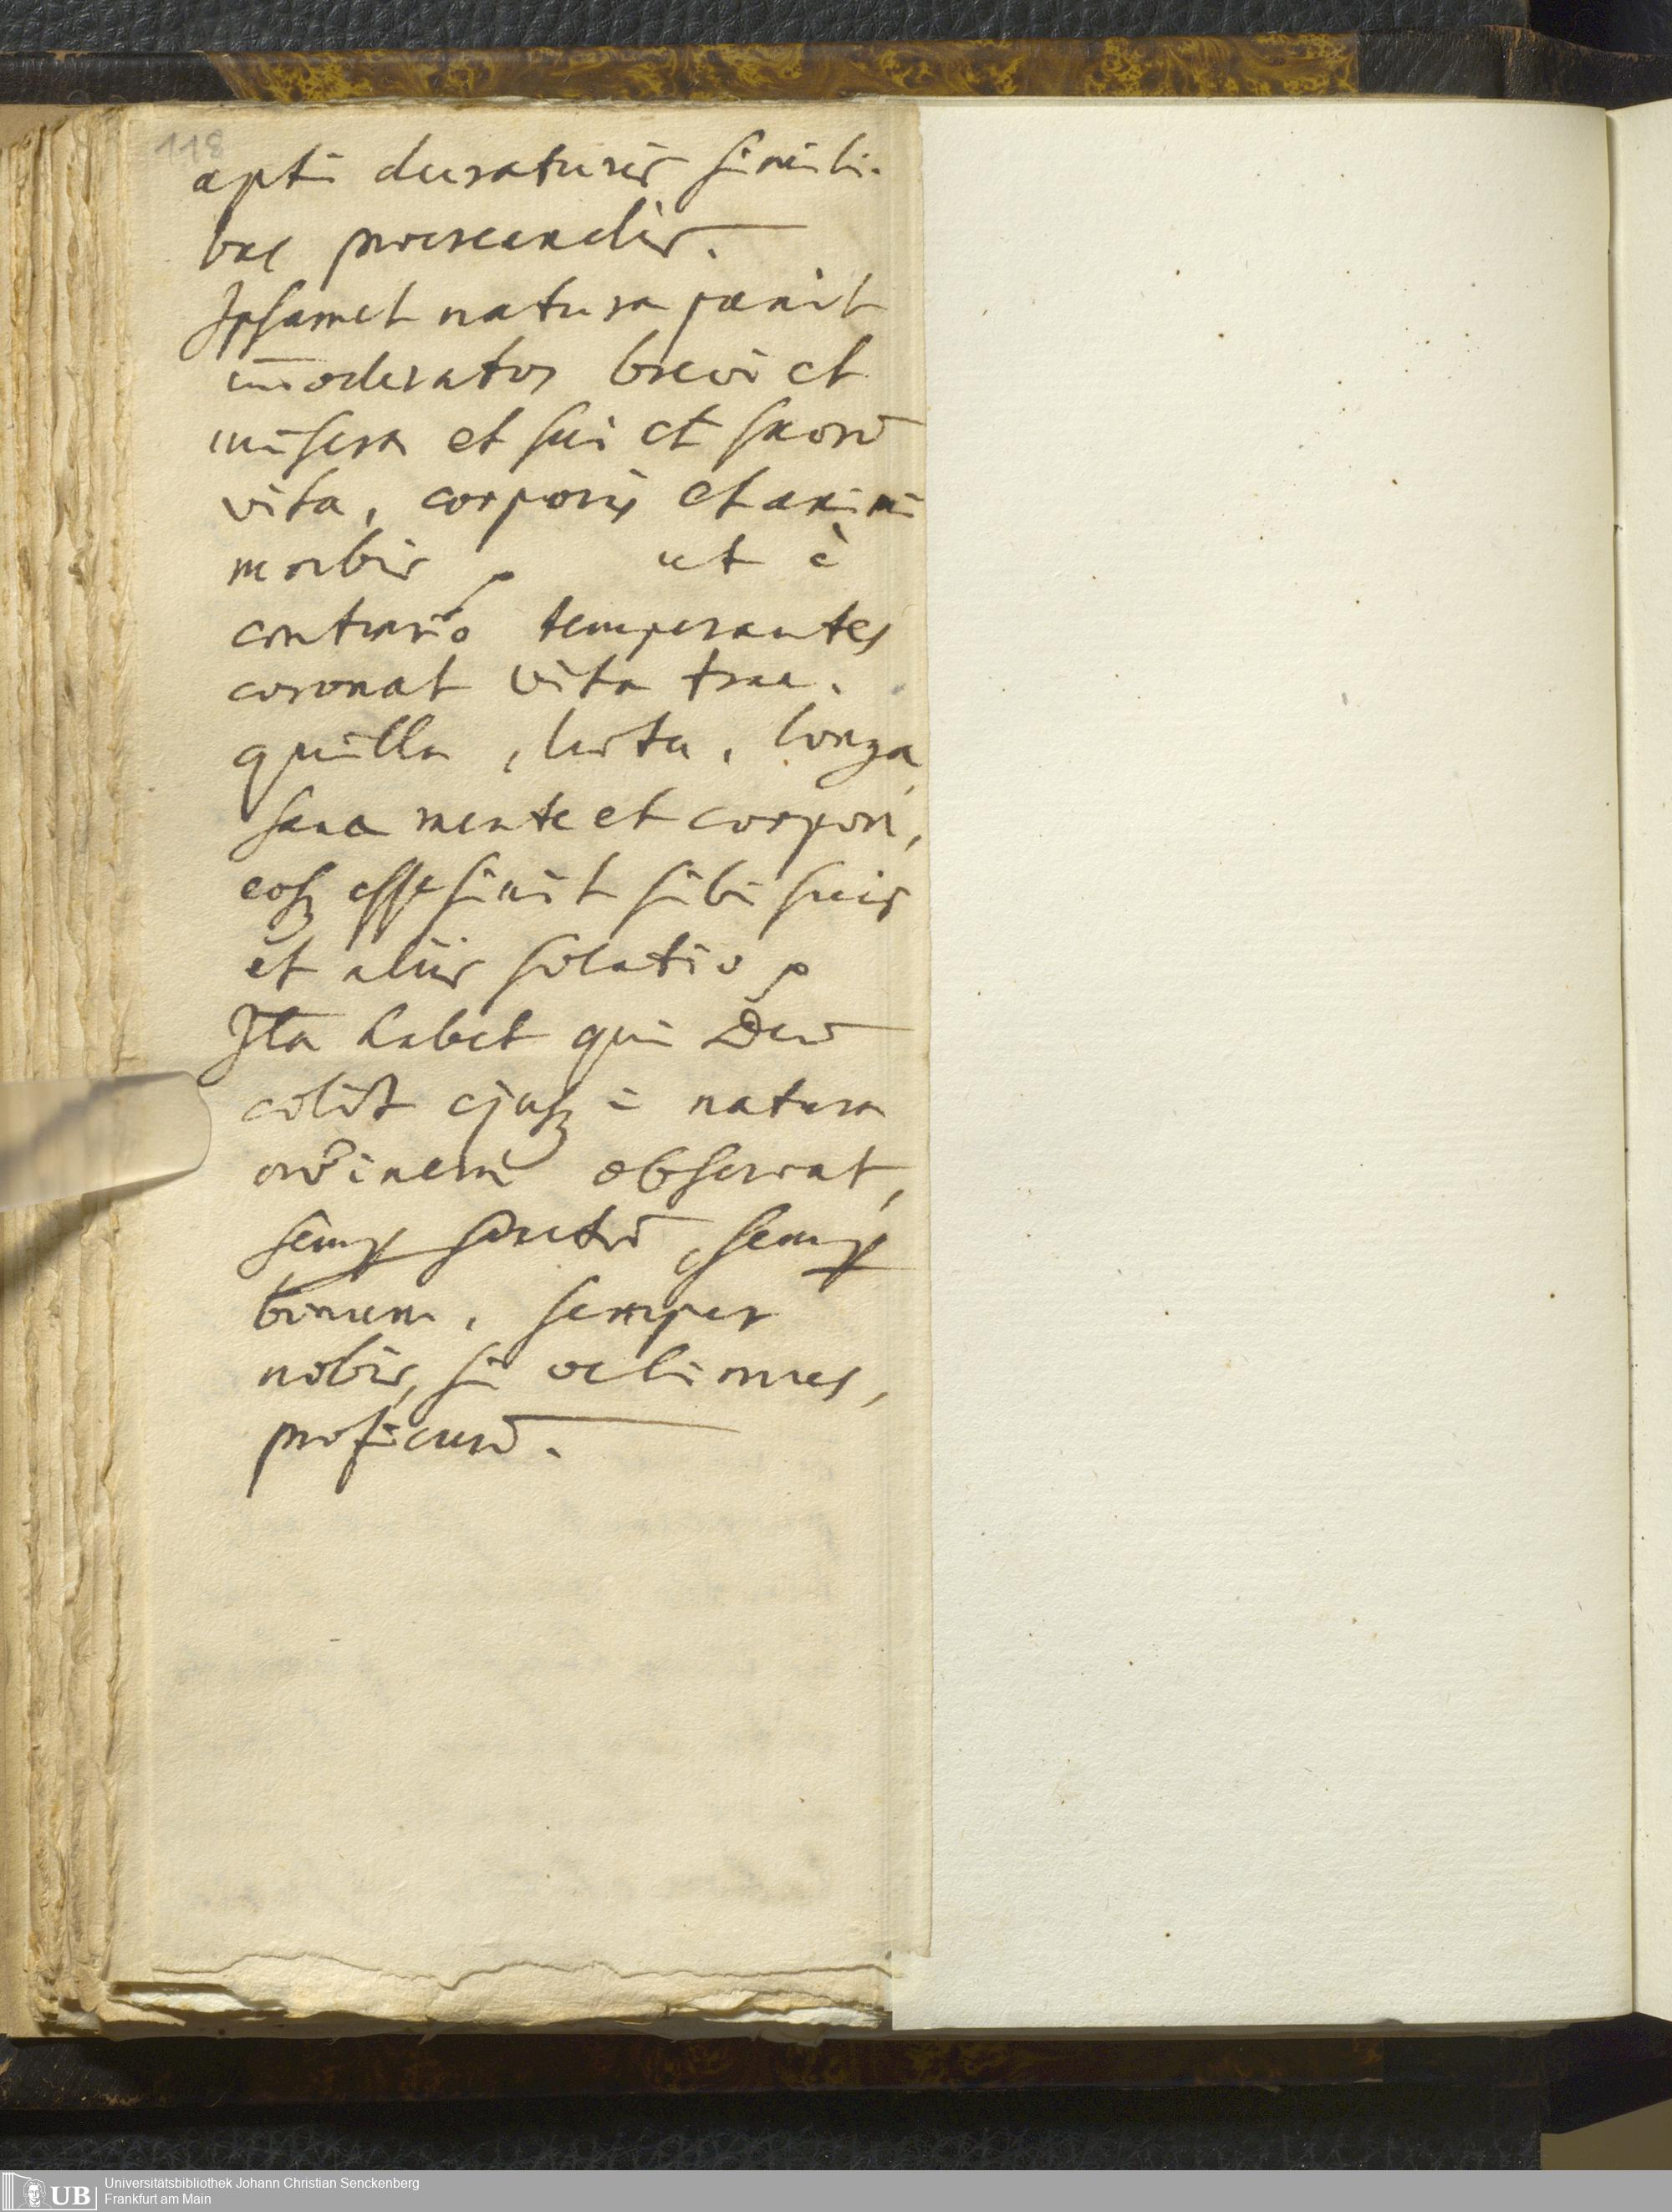 118
apti duraturis simili.
bus procreandis.
Ipsamet natura punit
im̄oderatos brevi et
misera et sui et suorū
vita, corporis et animi
morbis, ut è
contrario temperantes
coronat vita tran.
quilla, læta, longa,
sana mente et corpori,
eosq esse sinit sibi suis
et aliis solatio,
Ita habet qui Deū
colit ejusq ī natura
ordinem observat,
semp sanctū, semp
bonum, semper
nobis, si velimus,
proficuū.
UB Universitätsbibliothek Johann Christian Senckenberg
Frankfurt am Main